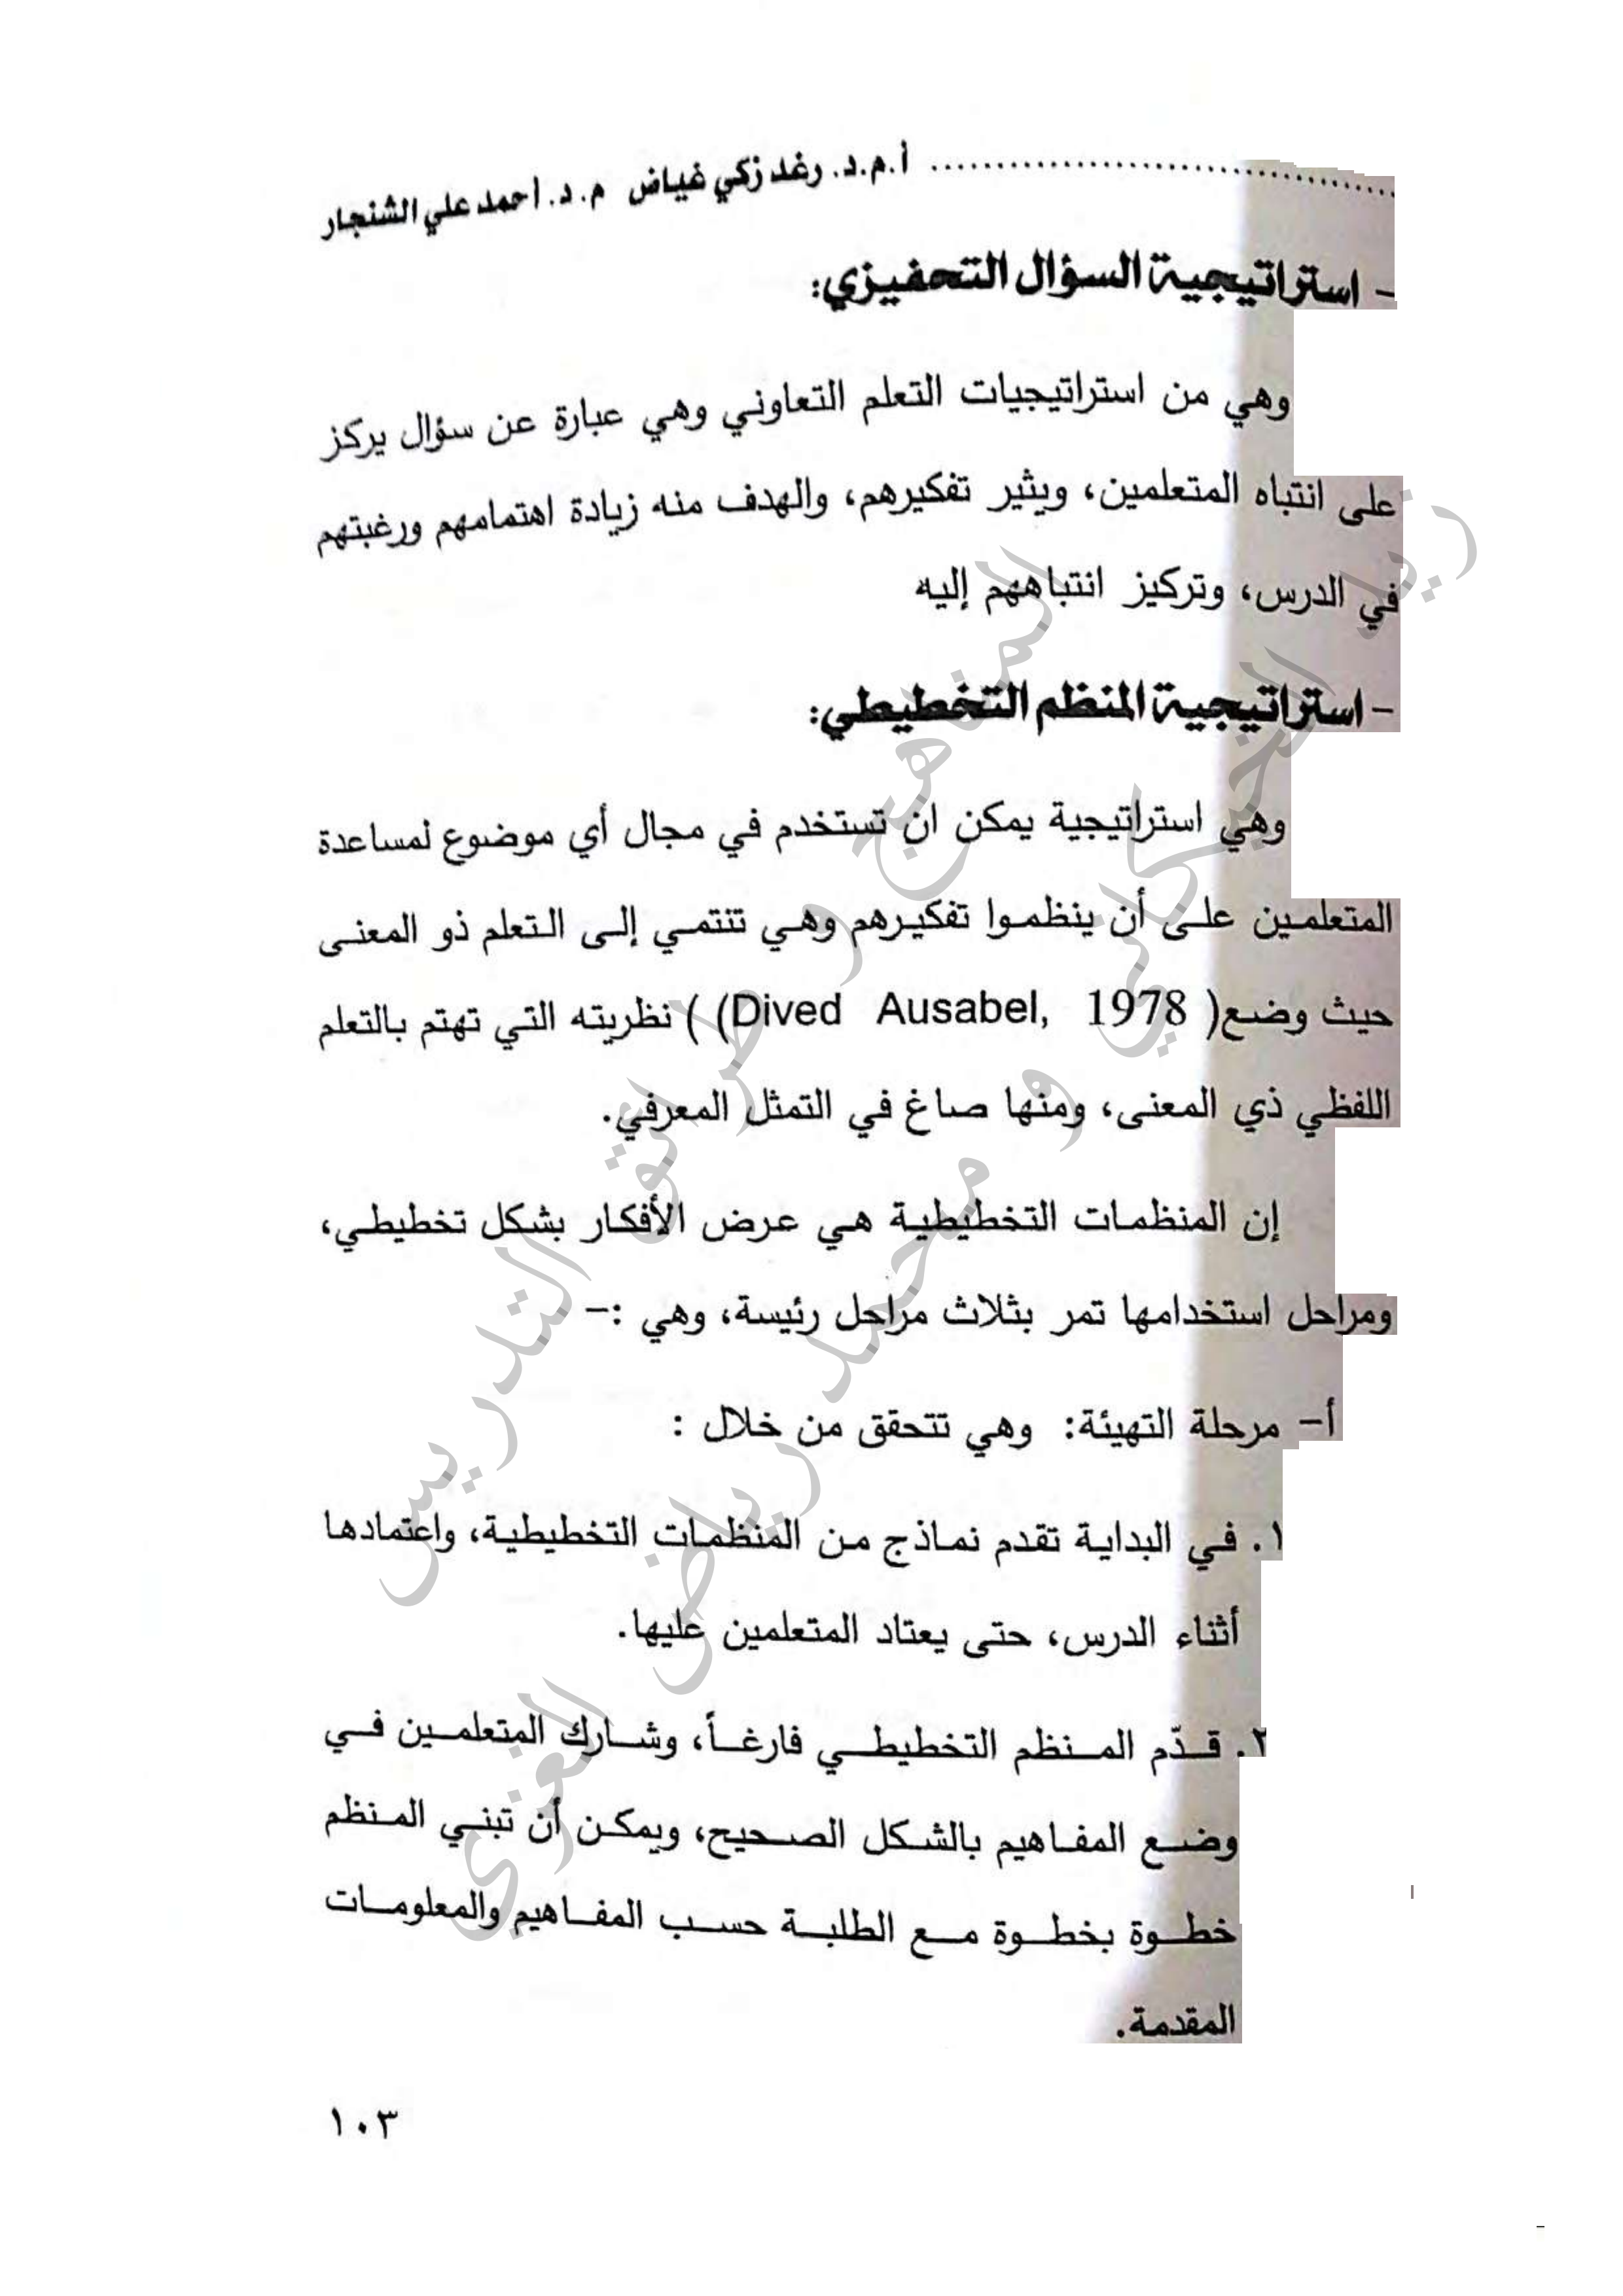 أ.م.د. رغد زكي غياض م. د. احمد علي الشنجار
- استراتيجية السؤال التحفيزي:
وهي من استراتيجيات التعلم التعاوني وهي عبارة عن سؤال يركز
على انتباه المتعلمين، ويثير تفكيرهم، والهدف منه زيادة اهتمامهم ورغبتهم
في الدرس، وتركيز انتباههم إليه
- استراتيجية المنظم التخطيطي:
وهي استراتيجية يمكن ان تستخدم في مجال أي موضوع لمساعدة
المتعلمين على أن ينظموا تفكيرهم وهي تنتمي إلى التعلم ذو المعنى
حيث وضع( Dived Ausabel, 1978) ) نظريته التي تهتم بالتعلم
اللفظي ذي المعنى، ومنها صاغ في التمثل المعرفي.
إن المنظمات التخطيطية هي عرض الأفكار بشكل تخطيطي،
ومراحل استخدامها تمر بثلاث مراحل رئيسة، وهي :-
أ- مرحلة التهيئة: وهي تتحقق من خلال :
١. في البداية تقدم نماذج من المنظمات التخطيطية، واعتمادها
أثناء الدرس، حتى يعتاد المتعلمين عليها.
٢. قدّم المنظم التخطيطي فارغاً، وشارك المتعلمين في
وضع المفاهيم بالشكل الصحيح، ويمكن أن تبني المنظم
خطوة بخطوة مع الطلبة حسب المفاهيم والمعلومات
المقدمة.
١٠٣
المناهج و طرائق التدريس
زينب الخيكاني و محمد رياض الغزي